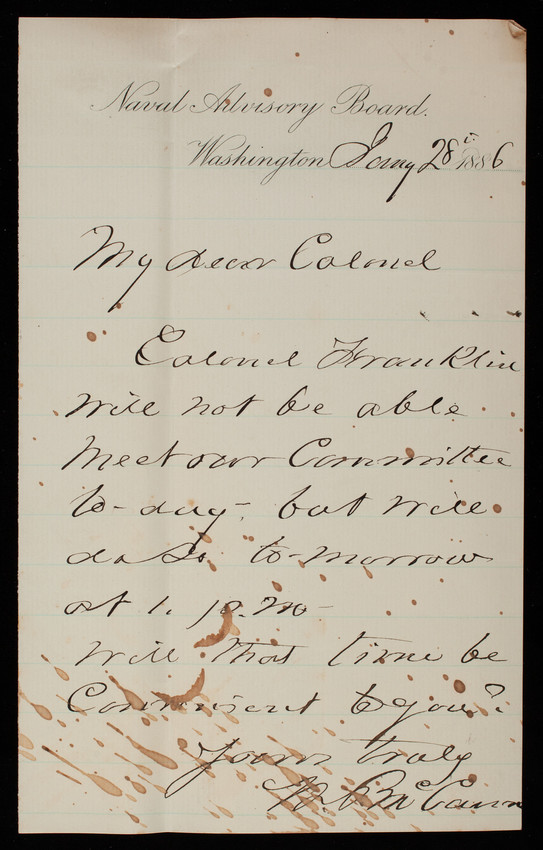 Naval Advisory Board.
Washington Jany 28th 1886
My dear Colonel
Colonel Franklin
will not be able
meet our Committee
to-day, but will
do so to-morrow
at 1. p.m-
Will that time be
Convenient to you?
Yours truly
W. P. McCann